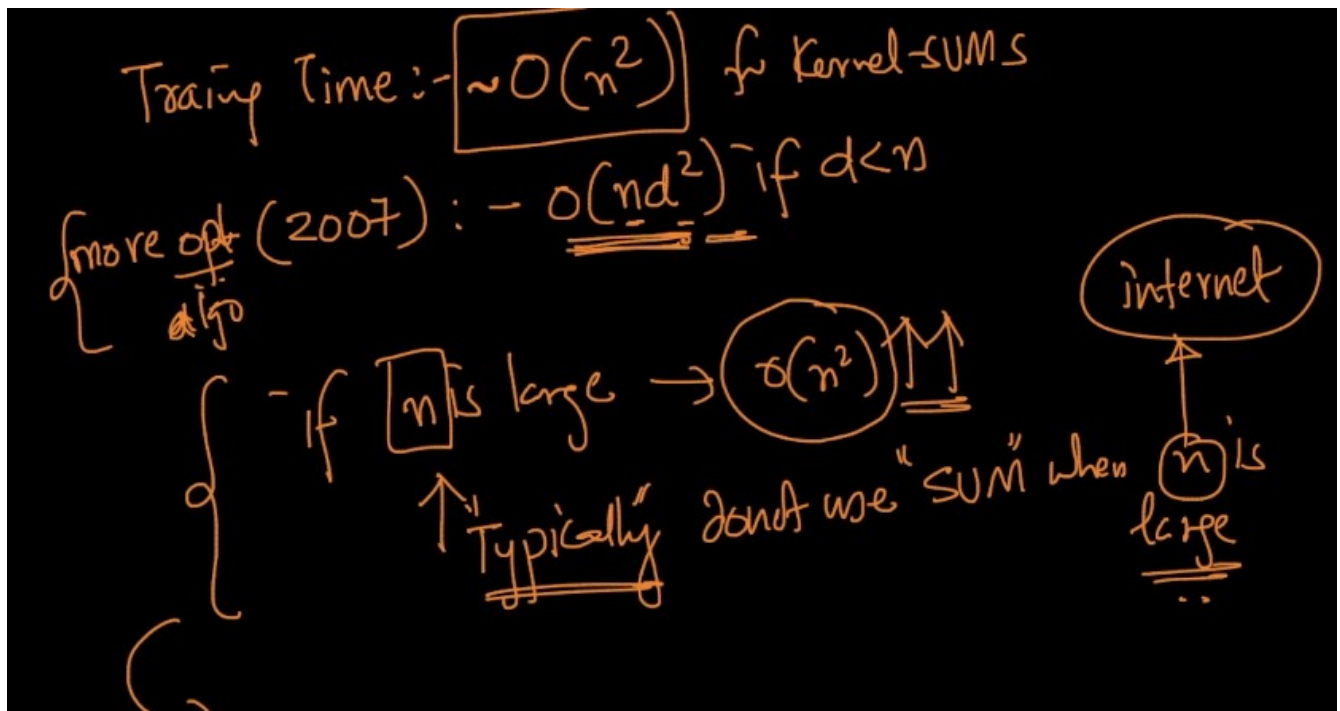 Traing Time:- ~O(n²) for Kernel-SVMs
more opt (2007) :- O(nd²) if d<n
algo
internet
- if n is large → O(n²) ↑↑↑
↑ "Typically" donot use "SVM" when n is
large